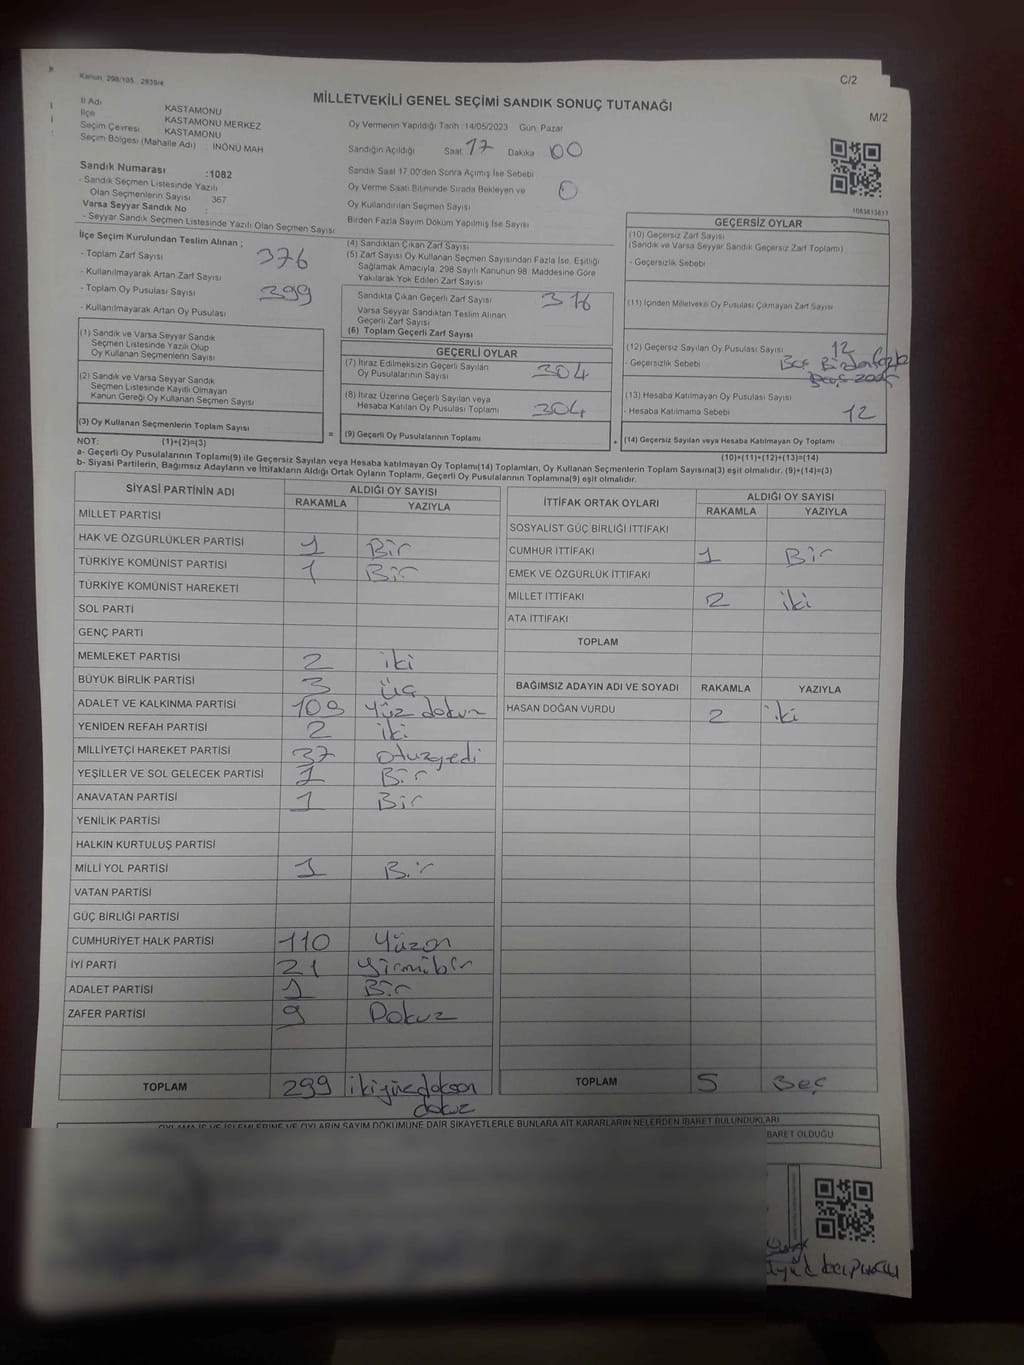 Kanun: 298/105 , 2839/4
C/2
MİLLETVEKİLİ GENEL SEÇİMİ SANDIK SONUÇ TUTANAĞI
M/2
İl Adı KASTAMONU
İlçe KASTAMONU MERKEZ
Seçim Çevresi KASTAMONU
Seçim Bölgesi (Mahalle Adı) İNÖNÜ MAH
Sandık Numarası :1082
- Sandık Seçmen Listesinde Yazılı
Olan Seçmenlerin Sayısı 367
Varsa Seyyar Sandık No :
- Seyyar Sandık Seçmen Listesinde Yazılı Olan Seçmen Sayısı
Oy Vermenin Yapıldığı Tarih :14/05/2023 Gün: Pazar
Sandığın Açıldığı Saat 17 Dakika 00
Sandık Saat 17.00'den Sonra Açımış İse Sebebi
Oy Verme Saati Bitiminde Sırada Bekleyen ve 0
Oy Kullandırılan Seçmen Sayısı
Birden Fazla Sayım Döküm Yapılmış İse Sayısı
1083813817
İlçe Seçim Kurulundan Teslim Alınan ;
- Toplam Zarf Sayısı 376
- Kullanılmayarak Artan Zarf Sayısı
- Toplam Oy Pusulası Sayısı 399
- Kullanılmayarak Artan Oy Pusulası
(1) Sandık ve Varsa Seyyar Sandık
Seçmen Listesinde Yazılı Olup
Oy Kullanan Seçmenlerin Sayısı
(2) Sandık ve Varsa Seyyar Sandık
Seçmen Listesinde Kayıtlı Olmayan
Kanun Gereği Oy Kullanan Seçmen Sayısı
(3) Oy Kullanan Seçmenlerin Toplam Sayısı
(4) Sandıktan Çıkan Zarf Sayısı
(5) Zarf Sayısı Oy Kullanan Seçmen Sayısından Fazla İse, Eşitliği
Sağlamak Amacıyla, 298 Sayılı Kanunun 98. Maddesine Göre
Yakılarak Yok Edilen Zarf Sayısı
Sandıkta Çıkan Geçerli Zarf Sayısı 316
Varsa Seyyar Sandıktan Teslim Alınan
Geçerli Zarf Sayısı
(6) Toplam Geçerli Zarf Sayısı
GEÇERLİ OYLAR
(7) İtiraz Edilmeksizin Geçerli Sayılan
Oy Pusulalarının Sayısı 304
(8) İtiraz Üzerine Geçerli Sayılan veya
Hesaba Katılan Oy Pusulası Toplamı 304
= (9) Geçerli Oy Pusulalarının Toplamı
GEÇERSİZ OYLAR
(10) Geçersiz Zarf Sayısı
(Sandık ve Varsa Seyyar Sandık Geçersiz Zarf Toplamı)
- Geçersizlik Sebebi
(11) İçinden Milletvekili Oy Pusulası Çıkmayan Zarf Sayısı
(12) Geçersiz Sayılan Oy Pusulası Sayısı 12
- Geçersizlik Sebebi
(13) Hesaba Katılmayan Oy Pusulası Sayısı
- Hesaba Katılmama Sebebi 12
+ (14) Geçersiz Sayılan veya Hesaba Katılmayan Oy Toplamı
NOT: (1)+(2)=(3)
(10)+(11)+(12)+(13)=(14)
a- Geçerli Oy Pusulalarının Toplamı(9) ile Geçersiz Sayılan veya Hesaba katılmayan Oy Toplamı(14) Toplamları, Oy Kullanan Seçmenlerin Toplam Sayısına(3) eşit olmalıdır. (9)+(14)=(3)
b- Siyasi Partilerin, Bağımsız Adayların ve İttifakların Aldığı Ortak Oyların Toplamı, Geçerli Oy Pusulalarının Toplamına(9) eşit olmalıdır.
SİYASİ PARTİNİN ADI ALDIĞI OY SAYISI
RAKAMLA YAZIYLA
MİLLET PARTİSİ
HAK VE ÖZGÜRLÜKLER PARTİSİ 1 Bir
TÜRKİYE KOMÜNİST PARTİSİ 1 Bir
TÜRKİYE KOMÜNİST HAREKETİ
SOL PARTİ
GENÇ PARTİ
MEMLEKET PARTİSİ 2 iki
BÜYÜK BİRLİK PARTİSİ 3 üç
ADALET VE KALKINMA PARTİSİ 109 Yüz dokuz
YENİDEN REFAH PARTİSİ 2 iki
MİLLİYETÇİ HAREKET PARTİSİ 37 otuzyedi
YEŞİLLER VE SOL GELECEK PARTİSİ 1 Bir
ANAVATAN PARTİSİ 1 Bir
YENİLİK PARTİSİ
HALKIN KURTULUŞ PARTİSİ
MİLLİ YOL PARTİSİ 1 Bir
VATAN PARTİSİ
GÜÇ BİRLİĞİ PARTİSİ
CUMHURİYET HALK PARTİSİ 110 Yüzon
İYİ PARTİ 21 yirmibir
ADALET PARTİSİ 1 Bir
ZAFER PARTİSİ 9 Dokuz
TOPLAM 299 ikiyüzdoksan
dokuz
İTTİFAK ORTAK OYLARI ALDIĞI OY SAYISI
RAKAMLA YAZIYLA
SOSYALİST GÜÇ BİRLİĞİ İTTİFAKI
CUMHUR İTTİFAKI 1 Bir
EMEK VE ÖZGÜRLÜK İTTİFAKI
MİLLET İTTİFAKI 2 iki
ATA İTTİFAKI
TOPLAM
BAĞIMSIZ ADAYIN ADI VE SOYADI RAKAMLA YAZIYLA
HASAN DOĞAN VURDU 2 iki
TOPLAM 5 Beş
OYLAMA İŞ VE İŞLEMLERİNE VE OYLARIN SAYIM DÖKÜMÜNE DAİR ŞİKAYETLERLE BUNLARA AİT KARARLARIN NELERDEN İBARET BULUNDUKLARI
BARET OLDUĞU